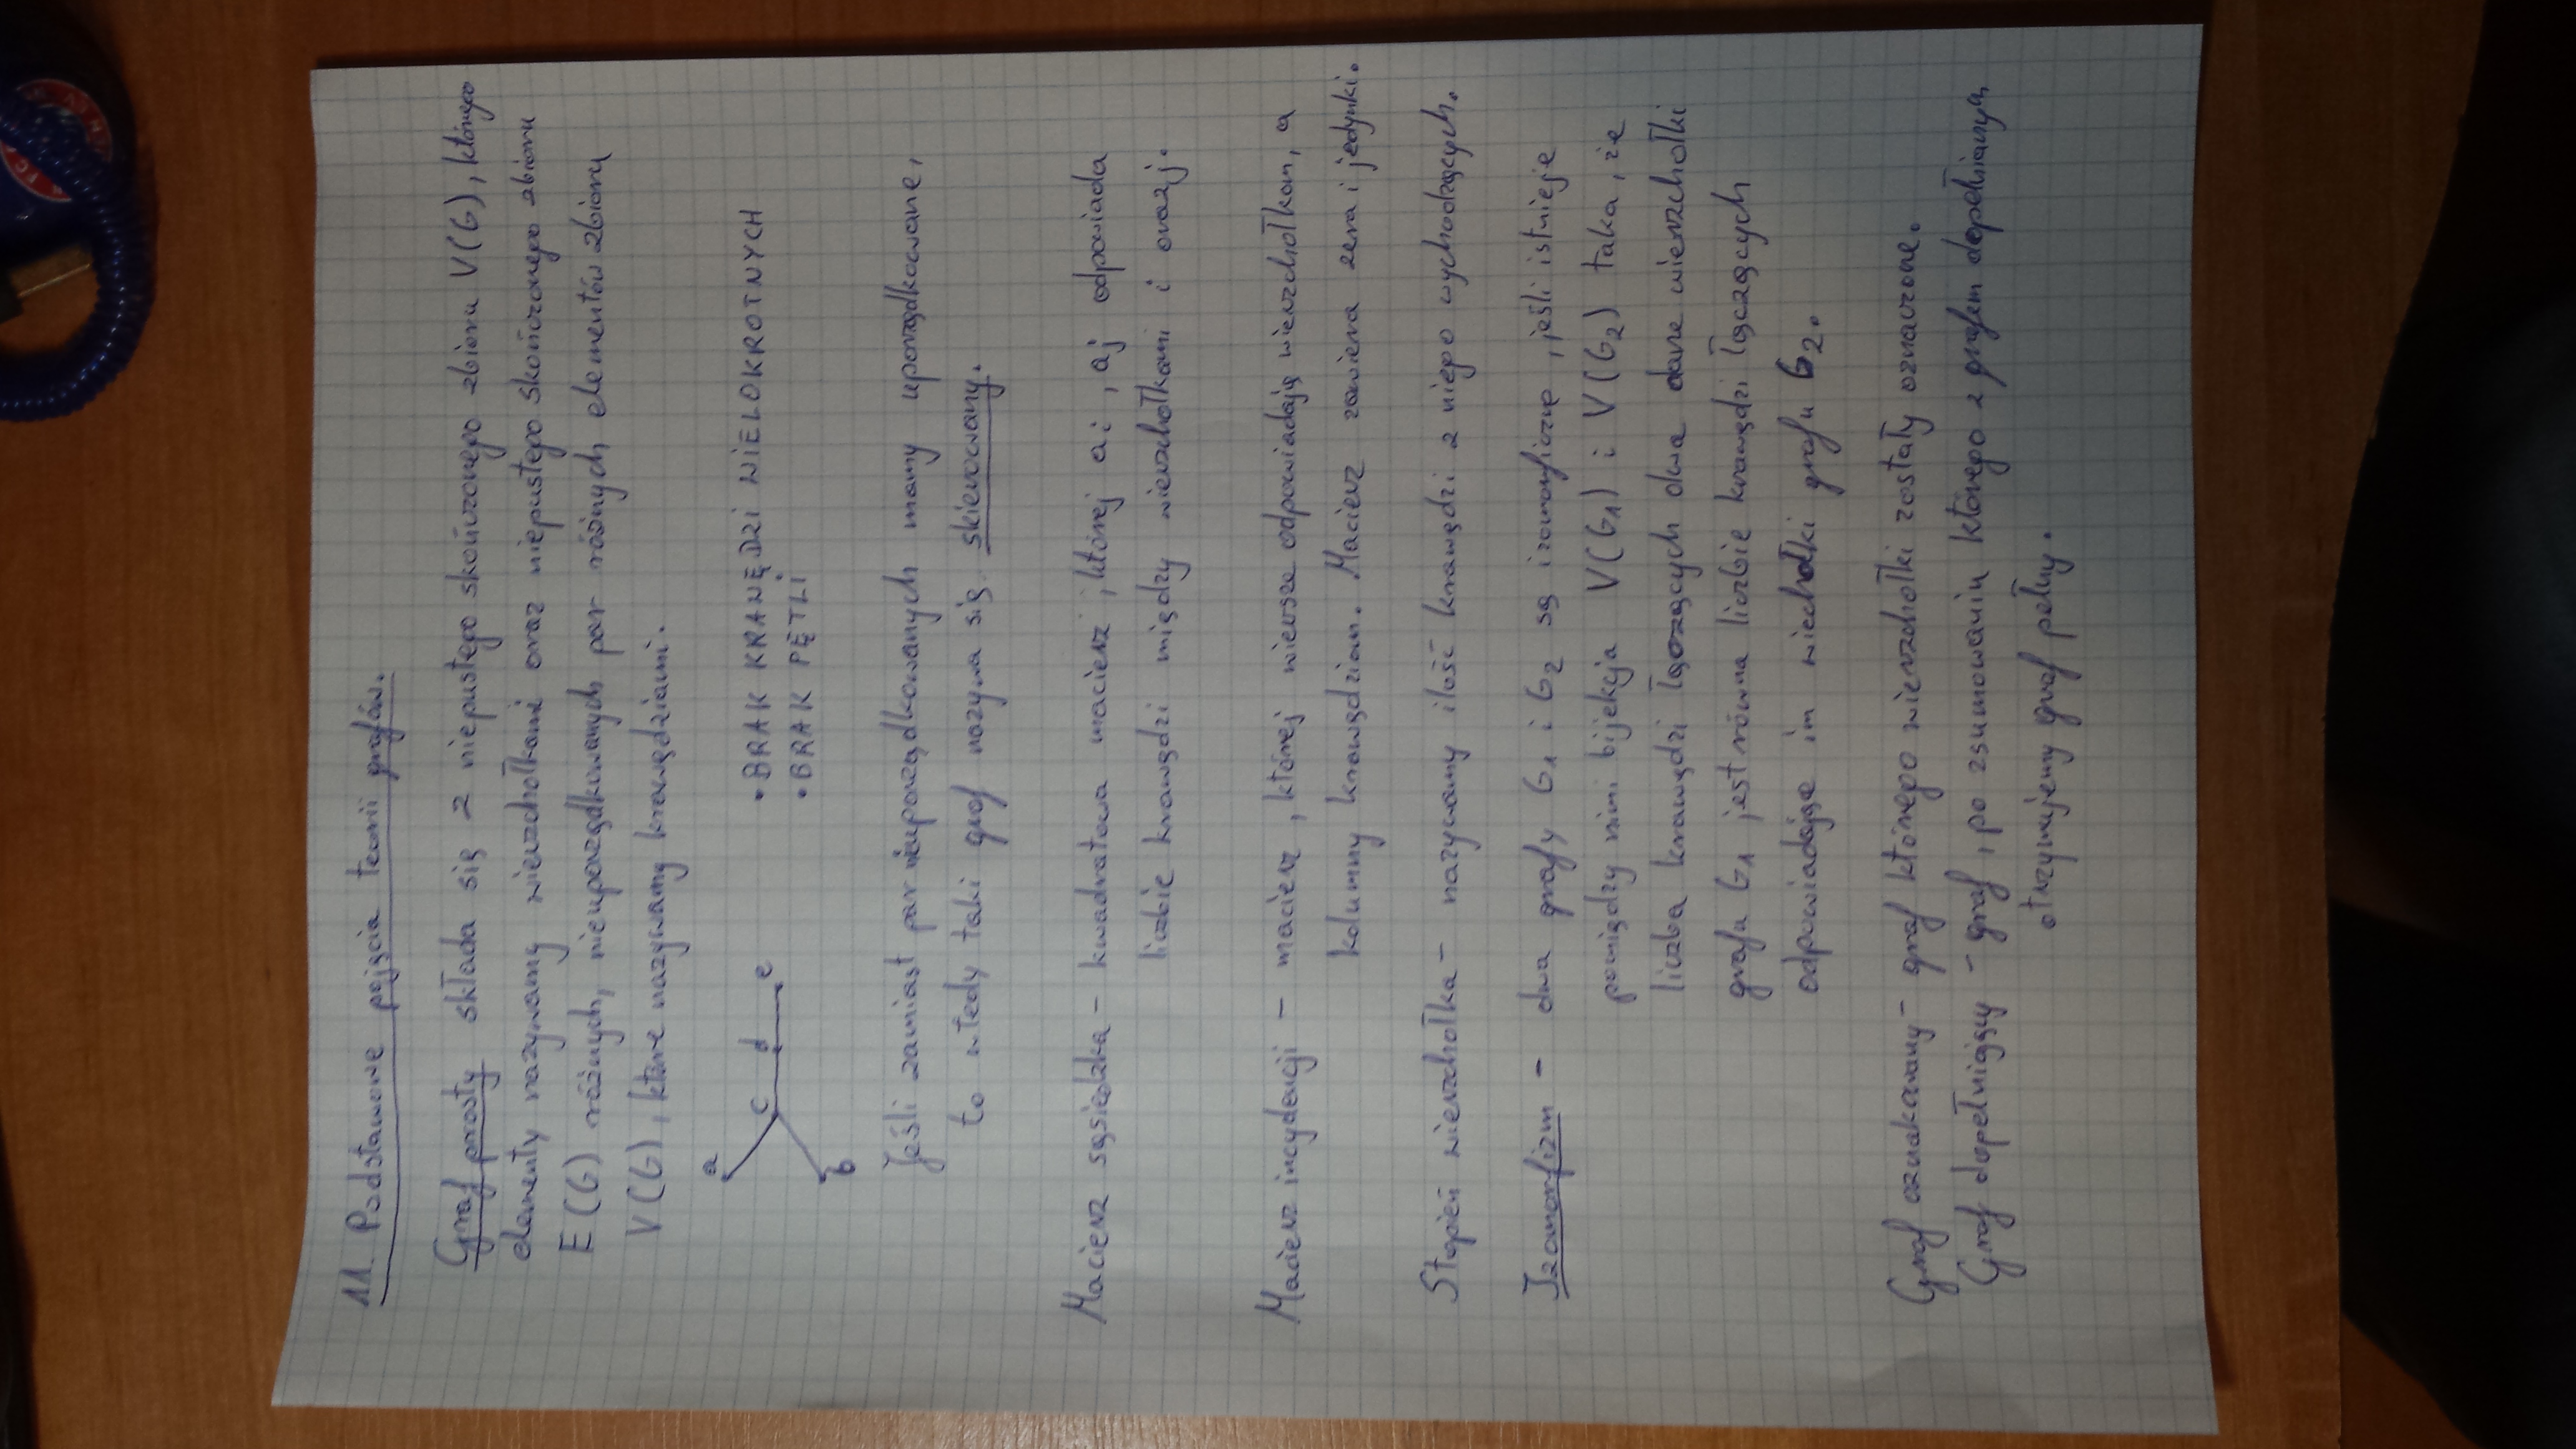 11. Podstawowe pojęcia teorii grafów.
Graf prosty składa się z niepustego skończonego zbioru V(G), którego
elementy nazywamy wierzchołkami oraz niepustego skończonego zbioru
E(G) różnych, nieuporządkowanych par różnych elementów zbioru
V(G), które nazywamy krawędziami.
a
c d e
b
• BRAK KRAWĘDZI WIELOKROTNYCH
• BRAK PĘTLI
Jeśli zamiast par nieuporządkowanych mamy uporządkowane,
to wtedy taki graf nazywa się skierowany.
Macierz sąsiedzka - kwadratowa macierz, której ai, aj odpowiada
liczbie krawędzi między wierzchołkami i oraz j.
Macierz incydencji - macierz, której wiersze odpowiadają wierzchołkom, a
kolumny krawędziom. Macierz zawiera zera i jedynki.
Stopień wierzchołka - nazywamy ilość krawędzi z niego wychodzących.
Izomorfizm - dwa grafy G1 i G2 są izomorficzne, jeśli istnieje
pomiędzy nimi bijekcja V(G1) i V(G2) taka, że
liczba krawędzi łączących dwa dane wierzchołki
grafu G1 jest równa liczbie krawędzi łączących
odpowiadające im wiechołki grafu G2.
Graf oznakowany - graf którego wierzchołki zostały oznaczone.
Graf dopełniający - graf, po zsumowaniu którego z grafem dopełnianym
otrzymujemy graf pełny.